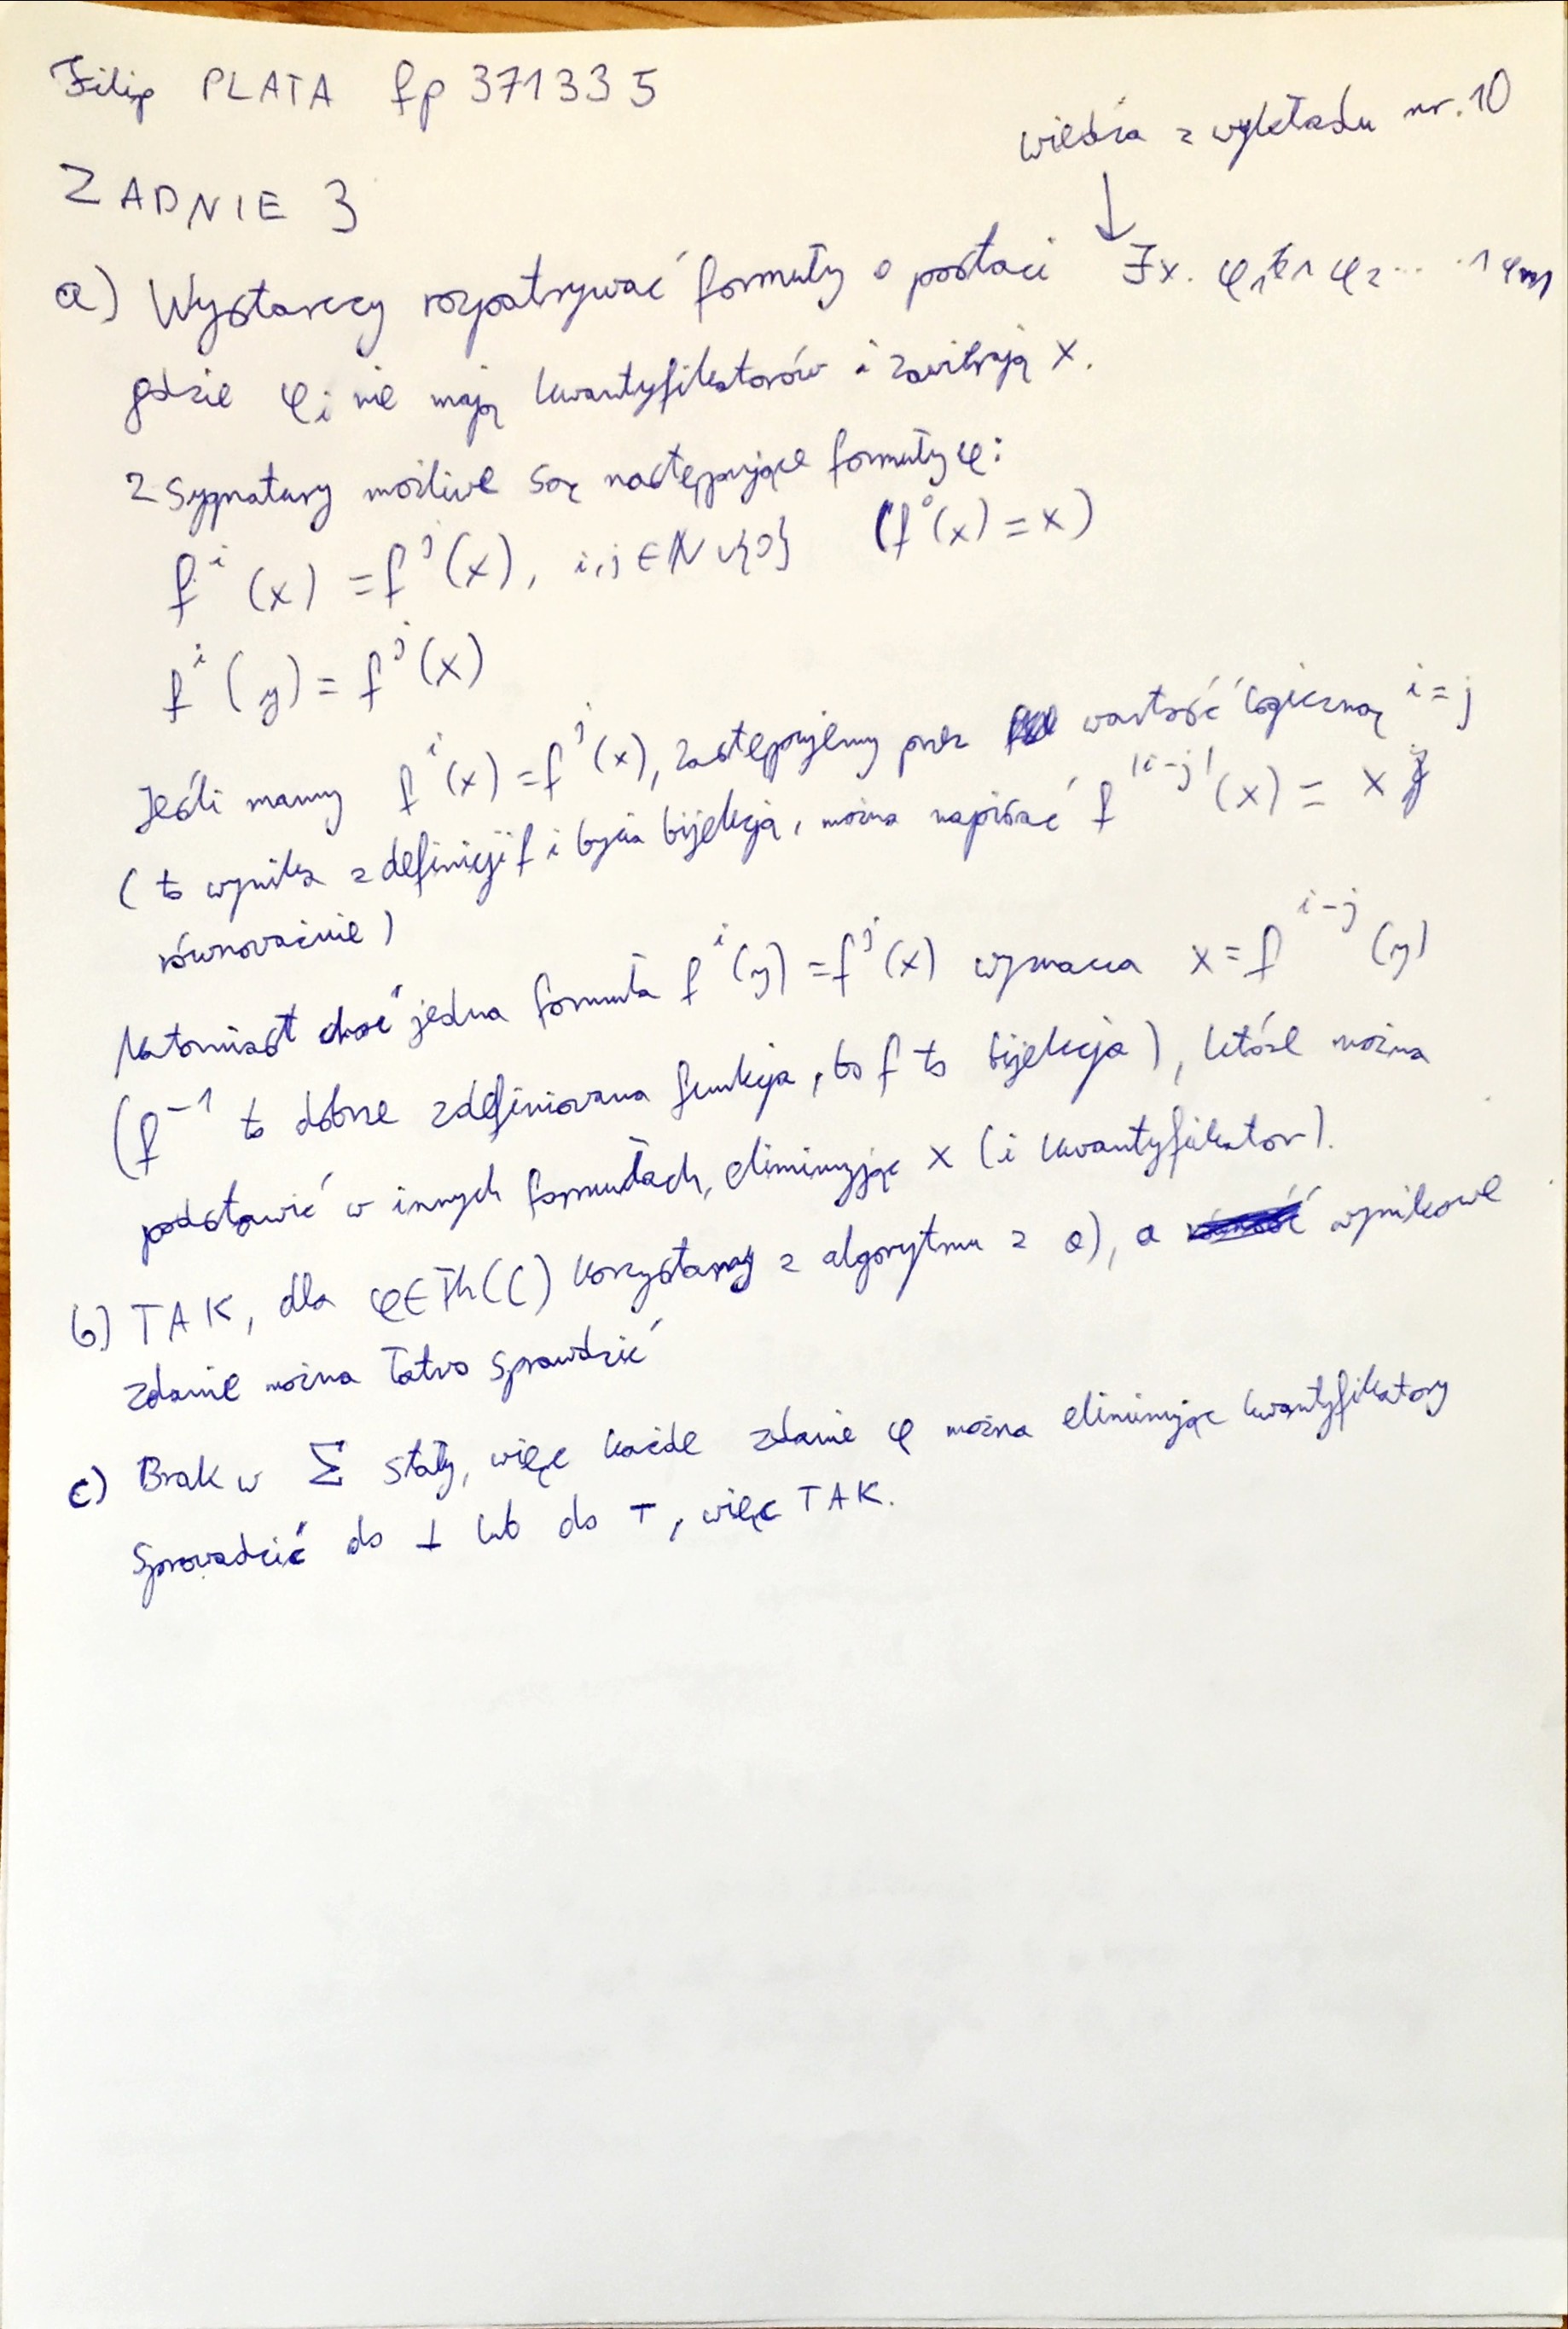 Filip PLATA fp 371335
wiedza z wykładu nr. 10
↓
ZADNIE 3
a) Wystarczy rozpatrywać formuły o postaci ∃x. φ₁ ∧ φ₂ ... ∧ φm
gdzie φᵢ nie mają kwantyfikatorów i zawierają x.
Z sygnatury możliwe są następujące formuły φ:
fⁱ(x) = fʲ(x), i,j ∈ ℕ ∪ {0} (f⁰(x) = x)
fⁱ(y) = fʲ(x)
Jeśli mamy fⁱ(x) = fʲ(x), zastępujemy przez wartość logiczną i = j
(to wynika z definicji f i bycia bijekcją, można napisać f^|i-j|(x) = x
równoważnie)
Natomiast choć jedna formuła fⁱ(y) = fʲ(x) wyznacza x = f^(i-j)(y)
(f⁻¹ to dobrze zdefiniowana funkcja, bo f to bijekcja), które można
podstawić w innych formułach, eliminując x (i kwantyfikator).
b) TAK, dla φ ∈ Th(C) korzystamy z algorytmu z a), a wynikowe
zdanie można łatwo sprawdzić
c) Brak w Σ stały, więc każde zdanie φ można eliminując kwantyfikatory
sprowadzić do ⊥ lub do ⊤, więc TAK.